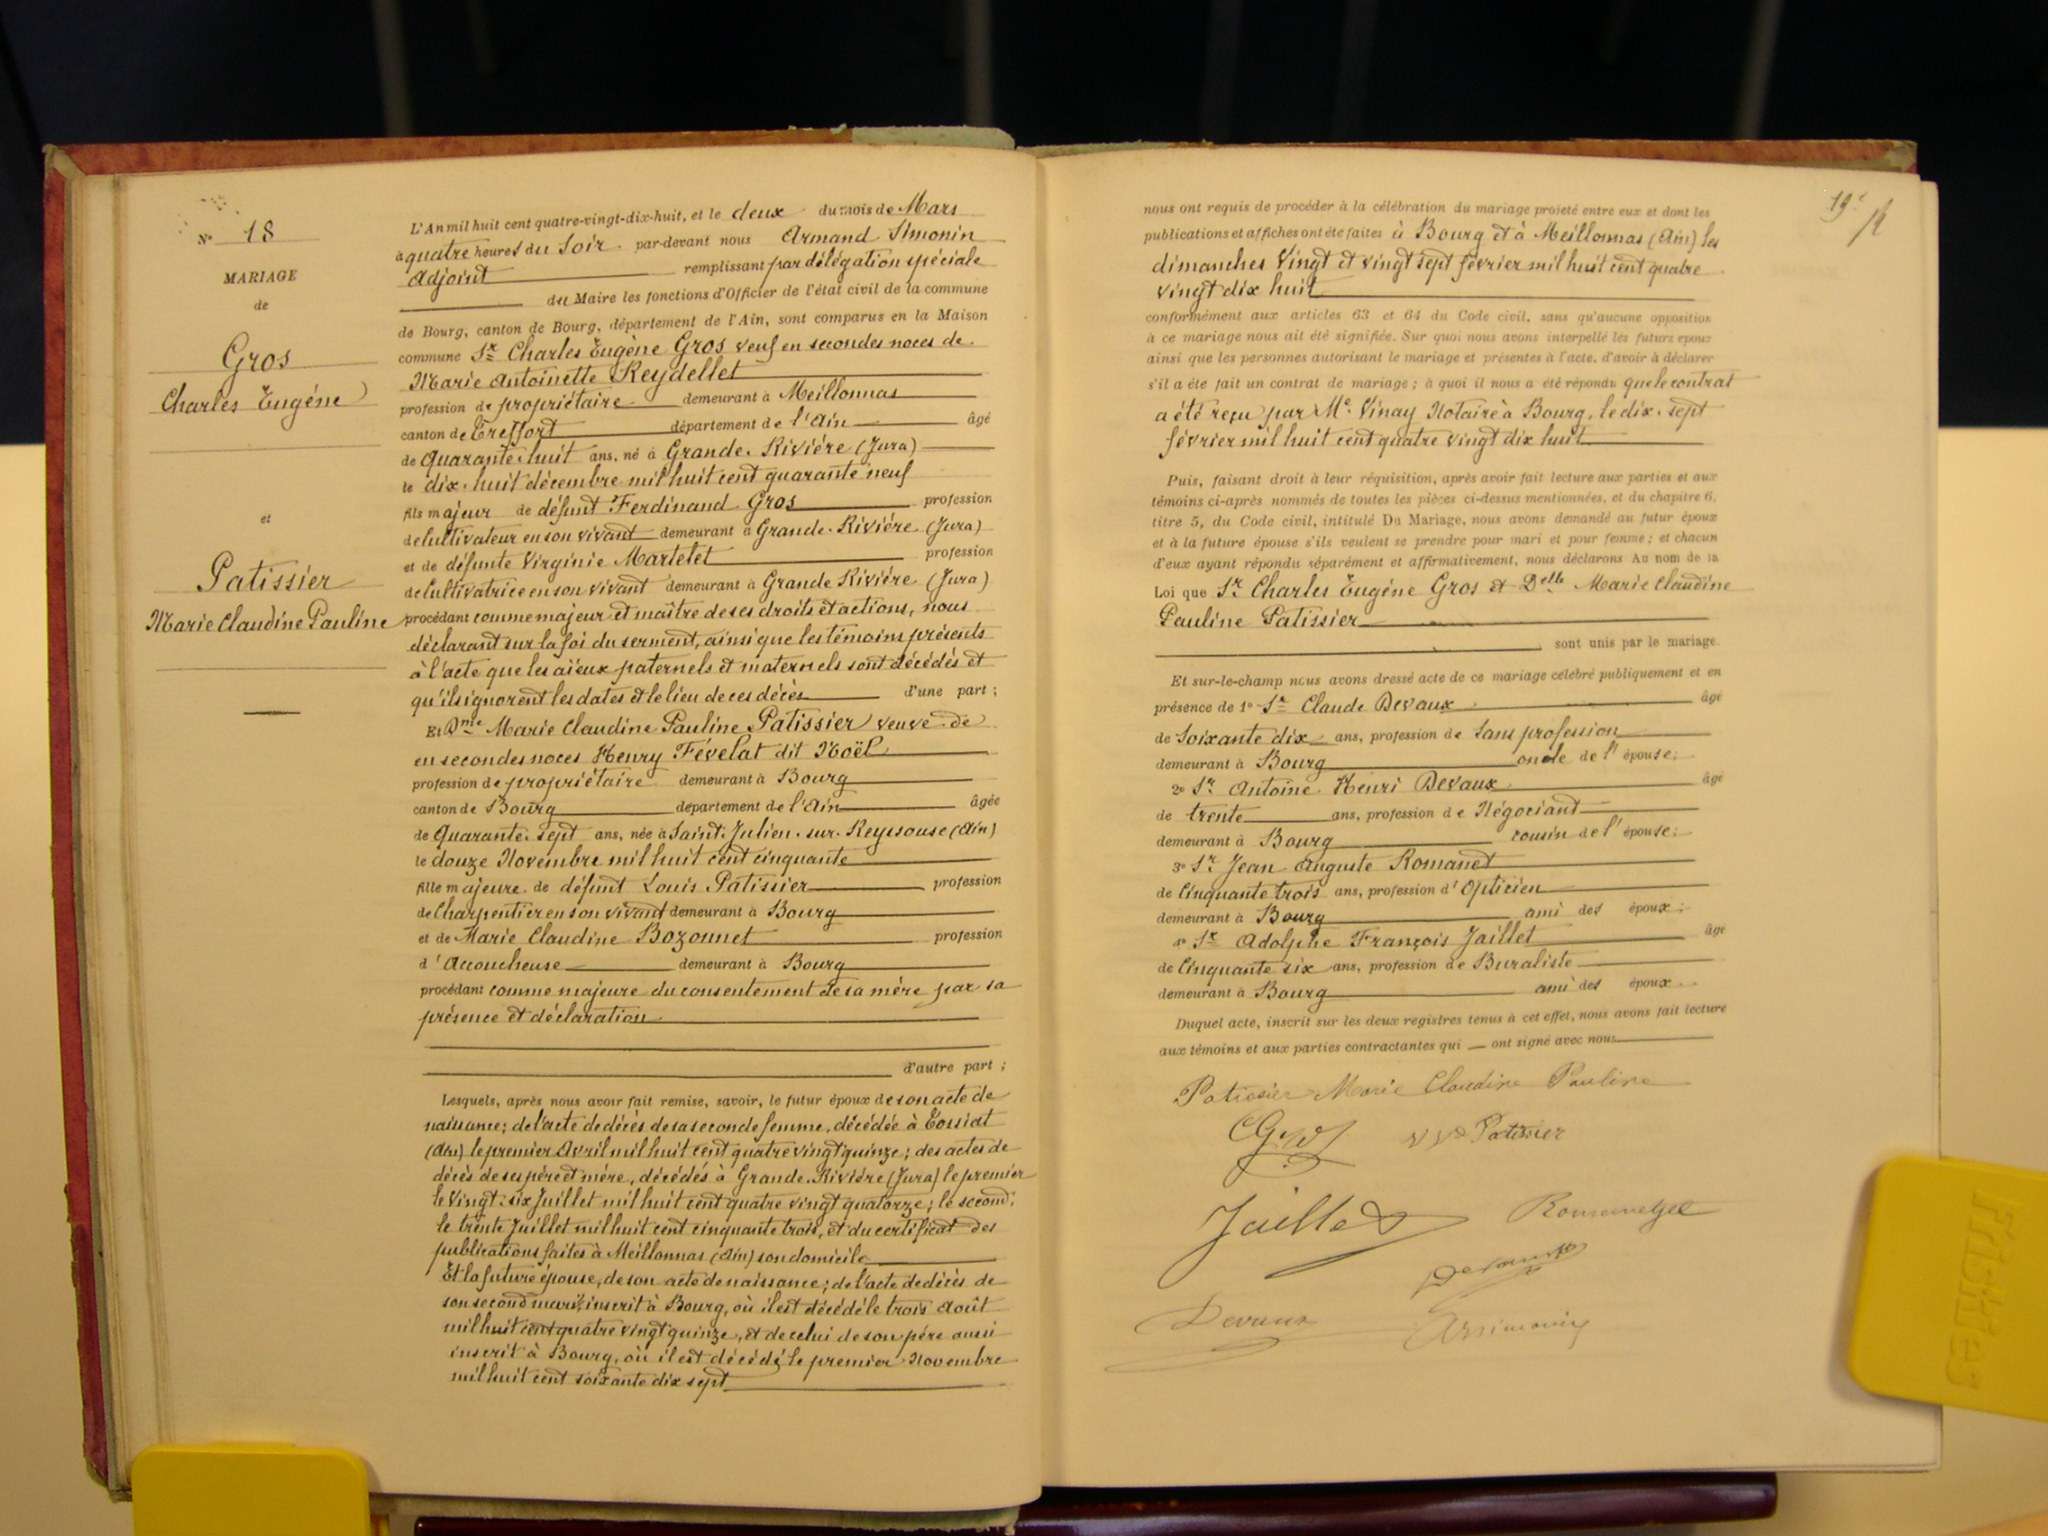 N° 18
MARIAGE
de
Gros
Charles Eugène
et
Patissier
Marie Claudine Pauline
L'An mil huit cent quatre-vingt-dix-huit, et le deux du mois de Mars
à quatre heures du Soir par-devant nous Armand Simonin
Adjoint remplissant par délégation spéciale
du Maire les fonctions d'Officier de l'état civil de la commune
de Bourg, canton de Bourg, département de l'Ain, sont comparus en la Maison
commune Sr Charles Eugène Gros veuf en secondes noces de
Marie Antoinette Reydellet
profession de propriétaire demeurant à Meillonnas
canton de Treffort département de l'Ain âgé
de Quarante-huit ans, né à Grande-Rivière (Jura)
le dix-huit décembre mil huit cent quarante neuf
fils majeur de défunt Ferdinand Gros profession
de Cultivateur en son vivant demeurant à Grande-Rivière (Jura)
et de défunte Virginie Martelet profession
de Cultivatrice en son vivant demeurant à Grande Rivière (Jura)
procédant comme majeur et maître de ses droits et actions, nous
déclarant sur la foi du serment, ainsi que les témoins présents
à l'acte que les aïeux paternels et maternels sont décédés et
qu'ils ignorent les dates et le lieu de ces décès d'une part ;
Et Dme Marie Claudine Pauline Patissier veuve de
en secondes noces Henry Févelat dit Noël
profession de propriétaire demeurant à Bourg
canton de Bourg département de l'Ain âgée
de Quarante-sept ans, née à Saint-Julien-sur-Reyssouse (Ain)
le douze Novembre mil huit cent cinquante
fille majeure de défunt Louis Patissier profession
de Charpentier en son vivant demeurant à Bourg
et de Marie Claudine Bozonnet profession
d'Accoucheuse demeurant à Bourg
procédant comme majeure du consentement de sa mère par sa
présence et déclaration
d'autre part ;
Lesquels, après nous avoir fait remise, savoir, le futur époux de son acte de
naissance ; de l'acte de décès de sa seconde femme, décédée à Tossiat
(Ain) le premier Avril mil huit cent quatre vingt quinze ; des actes de
décès de ses père et mère, décédés à Grande-Rivière (Jura) le premier
le vingt-six Juillet mil huit cent quatre vingt quatorze ; le second :
le trente Juillet mil huit cent cinquante trois, et du certificat des
publications faites à Meillonnas (Ain) son domicile
Et la future épouse, de son acte de naissance ; de l'acte de décès de
son second mari, inscrit à Bourg, où il est décédé le trois Août
mil huit cent quatre vingt quinze, et de celui de son père aussi
inscrit à Bourg, où il est décédé le premier Novembre
mil huit cent soixante dix sept
19e
nous ont requis de procéder à la célébration du mariage projeté entre eux et dont les
publications et affiches ont été faites à Bourg et à Meillonnas (Ain) les
dimanches Vingt et vingt sept février mil huit cent quatre
vingt dix huit
conformément aux articles 63 et 64 du Code civil, sans qu'aucune opposition
à ce mariage nous ait été signifiée. Sur quoi nous avons interpellé les futurs époux
ainsi que les personnes autorisant le mariage et présentes à l'acte, d'avoir à déclarer
s'il a été fait un contrat de mariage ; à quoi il nous a été répondu que le contrat
a été reçu par Me Vinay Notaire à Bourg, le dix-sept
février mil huit cent quatre vingt dix huit
Puis, faisant droit à leur réquisition, après avoir fait lecture aux parties et aux
témoins ci-après nommés de toutes les pièces ci-dessus mentionnées, et du chapitre 6,
titre 5, du Code civil, intitulé Du Mariage, nous avons demandé au futur époux
et à la future épouse s'ils veulent se prendre pour mari et pour femme ; et chacun
d'eux ayant répondu séparément et affirmativement, nous déclarons Au nom de la
Loi que Sr Charles Eugène Gros et Delle Marie Claudine
Pauline Patissier
sont unis par le mariage
Et sur-le-champ nous avons dressé acte de ce mariage célébré publiquement et en
présence de 1° Sr Claude Devaux âgé
de Soixante dix ans, profession de Sans profession
demeurant à Bourg oncle de l'épouse ;
2° Sr Antoine Henri Devaux âgé
de trente ans, profession de Négociant
demeurant à Bourg cousin de l'épouse ;
3° Sr Jean Auguste Romanet
de Cinquante trois ans, profession d'Opticien
demeurant à Bourg ami des époux ;
4° Sr Adolphe François Jaillet âgé
de Cinquante six ans, profession de Buraliste
demeurant à Bourg ami des époux
Duquel acte, inscrit sur les deux registres tenus à cet effet, nous avons fait lecture
aux témoins et aux parties contractantes qui ont signé avec nous
Patissier Marie Claudine Pauline
Patissier
Jaillet
Devaux
Devaux
A Simonin
Friskies